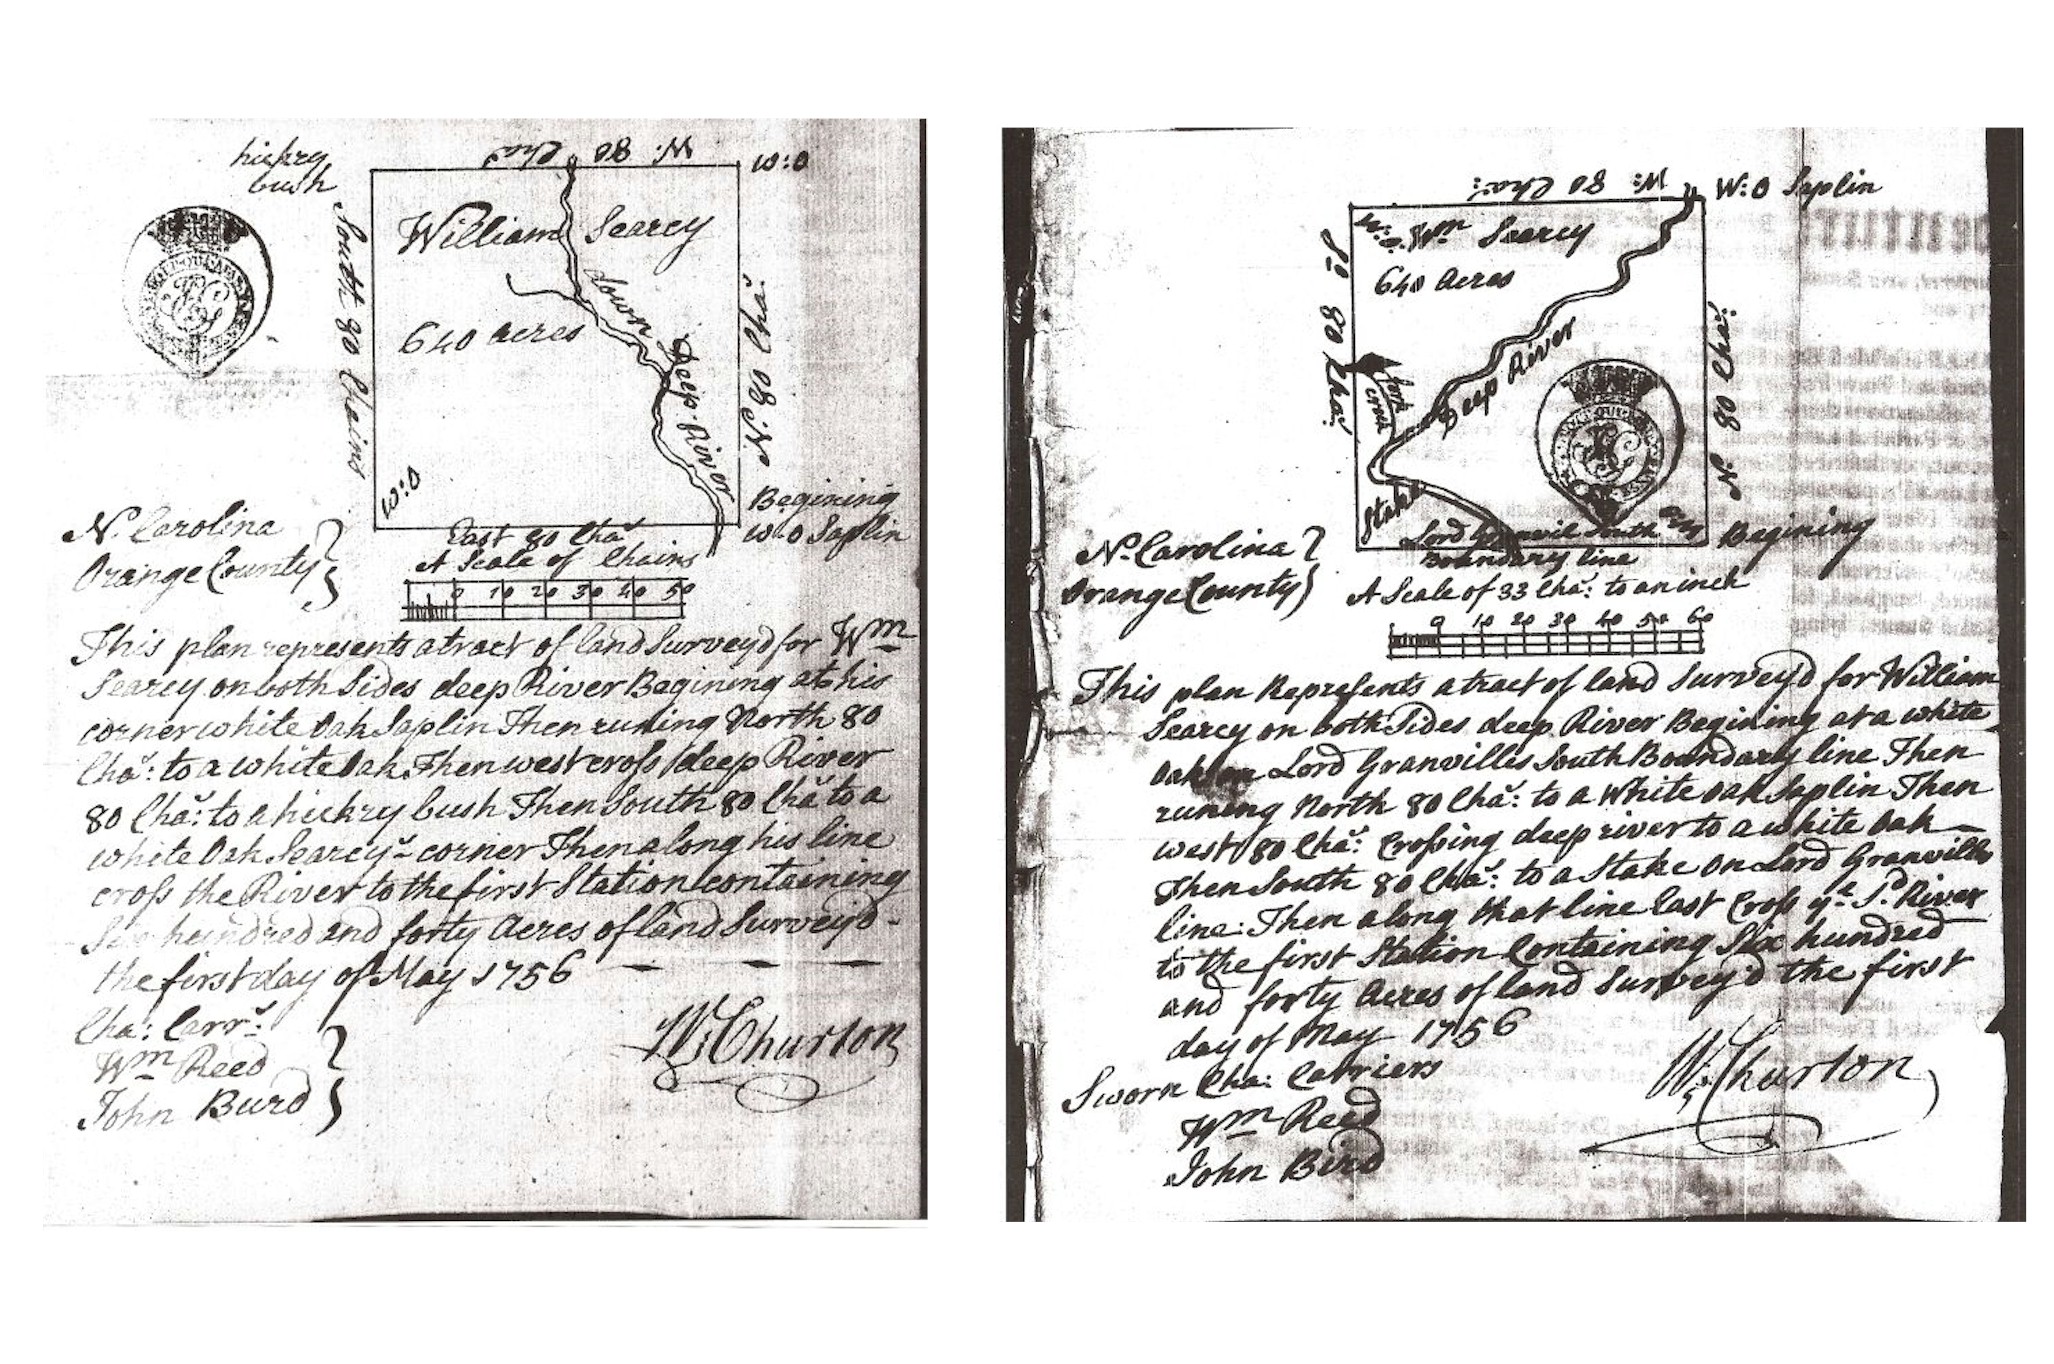 hickry
bush
W: 80 Cha:
W:O
William Searcy
640 acres
down Deep River
South 80 Chains
N: 80 Cha:
W:O
Begining
W:O Saplin
East 80 Cha:
A Scale of Chains
0 10 20 30 40 50
N: Carolina
Orange County
This plan represents a tract of land Survey'd for Wm
Searcy on both Sides deep River Begining at his
corner white Oak Saplin Then runing North 80
Cha: to a white Oak Then west cross deep River
80 Cha: to a hickry bush Then South 80 Cha: to a
white Oak Searcys corner Then along his line
cross the River to the first Station containing
Six hundred and forty Acres of land Survey'd
the first day of May 1756
Cha: Carrs
Wm Reed
John Burd
W: Churton
W: 80 Cha:
W:O Saplin
W:O
Wm Searcy
640 Acres
Deep River
fork creek
So 80 Cha:
N: 80 Cha:
Stake
Lord Granvil South
boundary line
Begining
No Carolina
Orange County
A Scale of 33 Cha: to an inch
0 10 20 30 40 50 60
This plan Represents a tract of land Survey'd for William
Searcy on both Sides deep River Begining at a white
Oak on Lord Granvills South Boundary line Then
runing North 80 Cha: to a White Oak Saplin Then
west 80 Cha: Crossing deep river to a white Oak
Then South 80 Cha: to a Stake on Lord Granvills
line: Then along that line East Cross ye Sd River
to the first Station Containing Six hundred
and forty Acres of land Survey'd the first
day of May 1756
Sworn Cha: Carriers
Wm Reed
John Bird
W: Churton